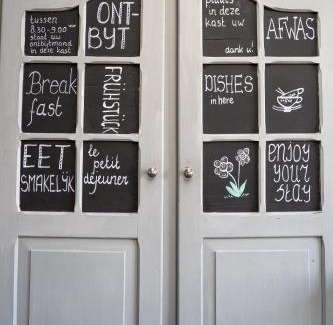 tussen
8.30-9.00 uur
staat uw
ontbijtmand
in deze kast.
ONT-
BYT
Break
fast
FRÜHSTÜCK
EET
SMAKELIJK
le
petit
déjeuner
plaats
in deze
kast uw
dank u!
AFWAS
DISHES
in here
enjoy
your
stay